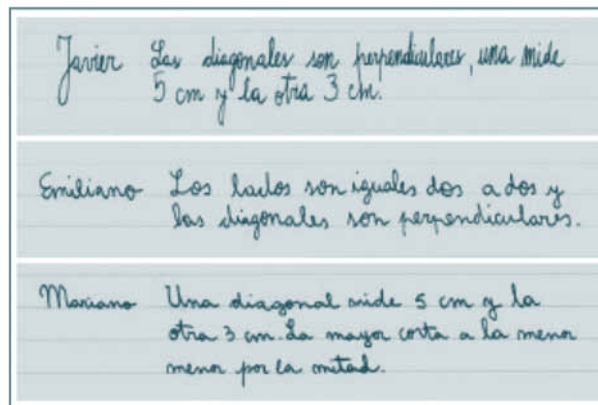 Javier Las diagonales son perpendiculares, una mide
5 cm y la otra 3 cm.
Emiliano Los lados son iguales dos a dos y
las diagonales son perpendiculares.
Mariano Una diagonal mide 5 cm y la
otra 3 cm. La mayor corta a la menor
menor por la mitad.